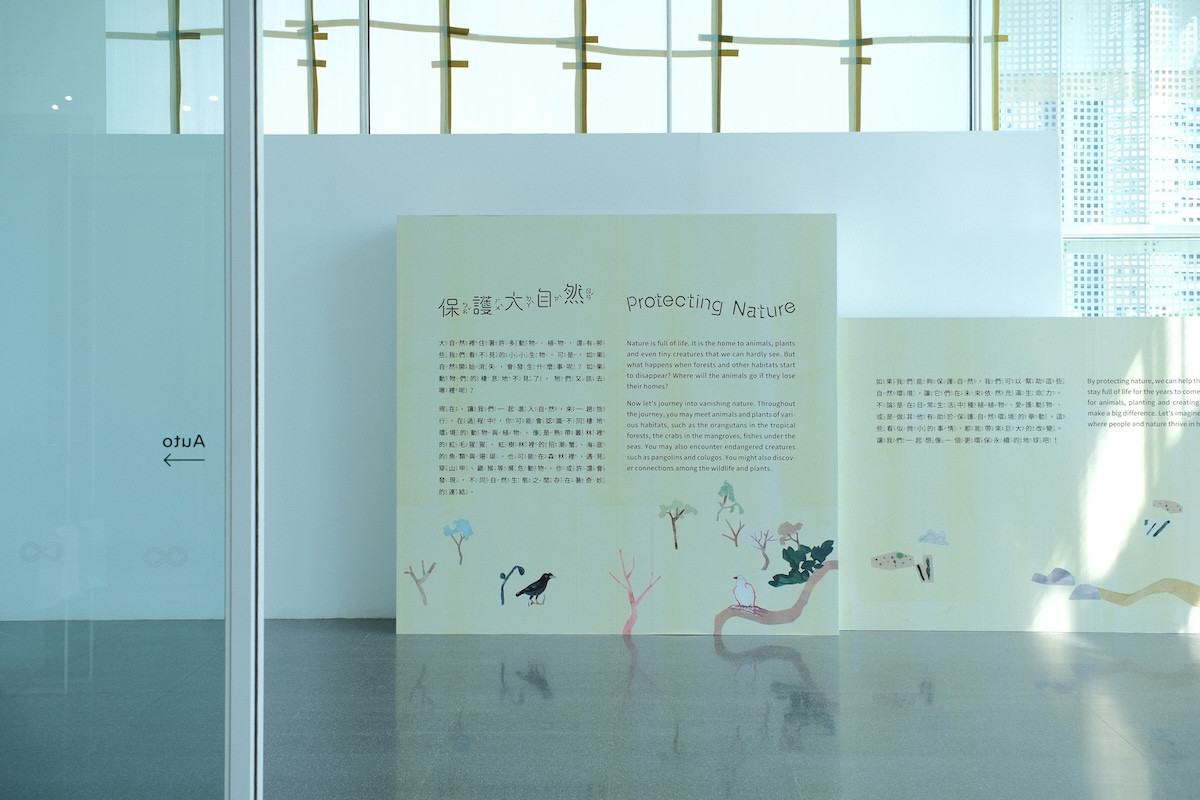 保護大自然
protecting Nature
大自然裡住著許多動物、植物，還有那
些我們看不見的小小生物。可是，如果
自然開始消失，會發生什麼事呢？如果
動物們的棲息地不見了，牠們又該去
哪裡呢？
現在，讓我們一起進入自然，來一趟旅
行。在過程中，你可能會認識不同棲地
環境的動物與植物，像是熱帶叢林裡
的紅毛猩猩、紅樹林裡的招潮蟹、海底
的魚類與珊瑚。也可能在森林裡，遇見
穿山甲、鼯猴等瀕危動物。你或許還會
發現，不同自然生態之間存在著奇妙
的連結。
Nature is full of life. It is the home to animals, plants
and even tiny creatures that we can hardly see. But
what happens when forests and other habitats start
to disappear? Where will the animals go if they lose
their homes?
Now let's journey into vanishing nature. Throughout
the journey, you may meet animals and plants of vari-
ous habitats, such as the orangutans in the tropical
forests, the crabs in the mangroves, fishes under the
seas. You may also encounter endangered creatures
such as pangolins and colugos. You might also discov-
er connections among the wildlife and plants.
如果我們能夠保護自然，我們可以幫助這些
自然環境，讓它們在未來依然充滿生命力。
不論是在日常生活中種植植物、愛護動物，
或是做其他有助於保護自然環境的舉動。這
些看似微小的事情，都能帶來巨大的改變。
讓我們一起想像一個更環保永續的地球吧！
By protecting nature, we can help th
stay full of life for the years to come
for animals, planting and creating
make a big difference. Let's imagin
where people and nature thrive in h
Auto